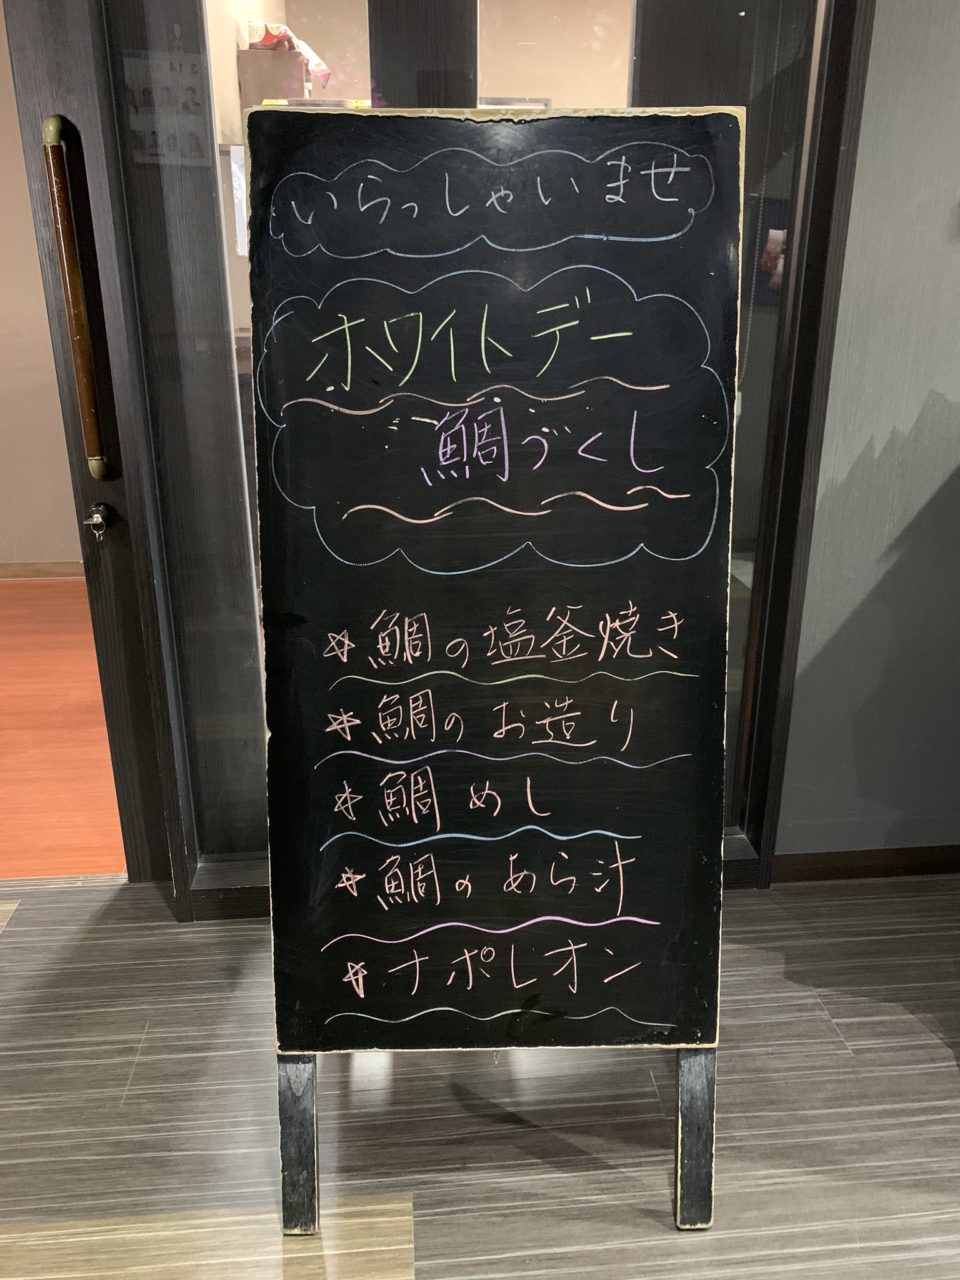 いらっしゃいませ
ホワイトデー
鯛づくし
☆鯛の塩釜焼き
☆鯛のお造り
☆鯛めし
☆鯛のあら汁
☆ナポレオン